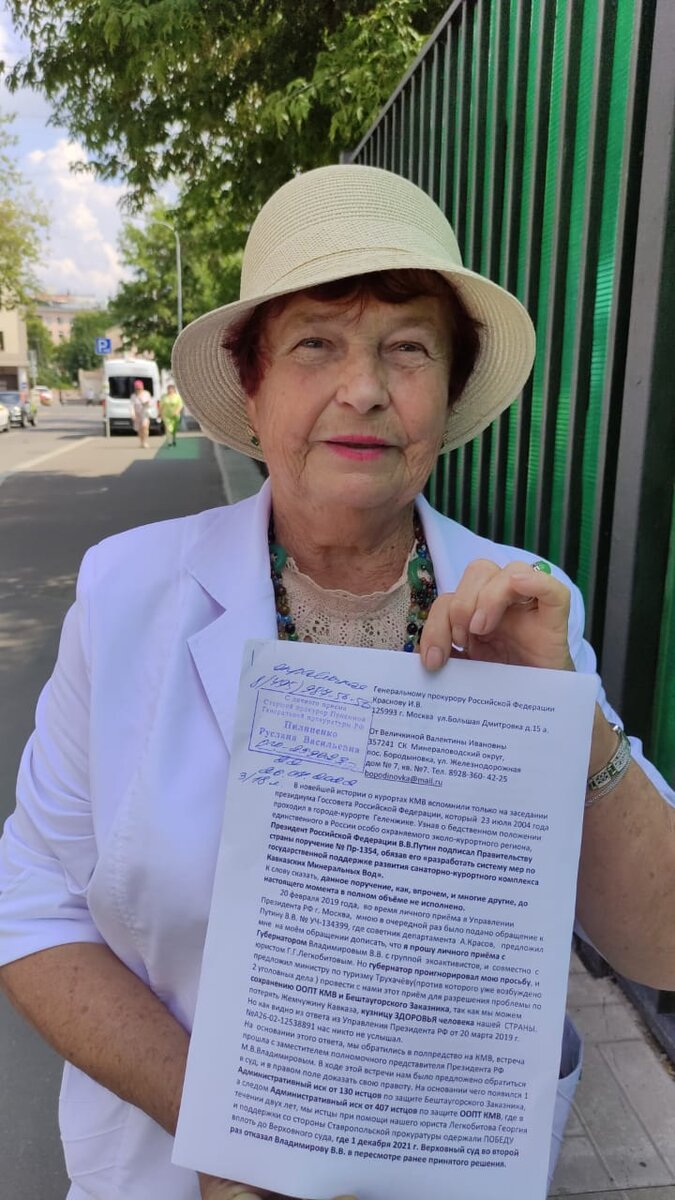 С личного приема
Старший прокурор Приемной
Генеральной прокуратуры РФ
Пилипенко
Руслана Васильевна
Генеральному прокурору Российской Федерации
Краснову И.В.
125993 г. Москва ул.Большая Дмитровка д.15 а.
От Величкиной Валентины Ивановны
357241 СК Минераловодский округ,
пос. Бородыновка, ул. Железнодорожная
дом № 7, кв. №7. Тел. 8928-360-42-25
bopodinovka@mail.ru
В новейшей истории о курортах КМВ вспомнили только на заседании
президиума Госсовета Российской Федерации, который 23 июля 2004 года
проходил в городе-курорте Геленжике. Узнав о бедственном положении
единственного в России особо охраняемого эколо-курортного региона,
Президент Российской Федерации В.В.Путин подписал Правительству
страны поручение № Пр-1354, обязав его «разработать систему мер по
государственной поддержке развития санаторно-курортного комплекса
Кавказских Минеральных Вод».
К слову сказать, данное поручение, как, впрочем, и многие другие, до
настоящего момента в полном объёме не исполнено.
20 февраля 2019 года, во время личного приёма в Управлении
Президента РФ г. Москва, мною в очередной раз было подано обращение к
Путину В.В. № УЧ-134399, где советник департамента А.Красов, предложил
мне на моём обращении дописать, что я прошу личного приёма с
Губернатором Владимировым В.В. с группой экоактивистов, и совместно с
юристом Г.Г.Легкобитовым. Но губернатор проигнорировал мою просьбу, и
предложил министру по туризму Трухачёву(против которого уже возбуждено
2 уголовных дела ) провести с нами этот приём для разрешения проблемы по
сохранению ООПТ КМВ и Бештаугорского Заказника, так как мы можем
потерять Жемчужину Кавказа, кузницу ЗДОРОВЬЯ человека нашей СТРАНЫ.
Но как видно из ответа из Управления Президента РФ от 20 марта 2019 г.
№А26-02-12538891 нас никто не услышал.
На основании этого ответа, мы обратились в полпредство на КМВ, встреча
прошла с заместителем полномочного представителя Президента РФ
М.В.Владимировым. В ходе этой встречи нам было предложено обратиться
в суд, и в правом поле доказать свою правоту. На основании чего появился 1
Административный иск от 130 истцов по защите Бештаугорского Заказника,
а следом Административный иск от 407 истцов по защите ООПТ КМВ, где в
течении двух лет, мы истцы при помощи нашего юриста Легкобитова Георгия
и поддержки со стороны Ставропольской прокуратуры одержали ПОБЕДУ
вплоть до Верховного суда, где 1 декабря 2021 г. Верховный суд во второй
раз отказал Владимирову В.В. в пересмотре ранее принятого решения.